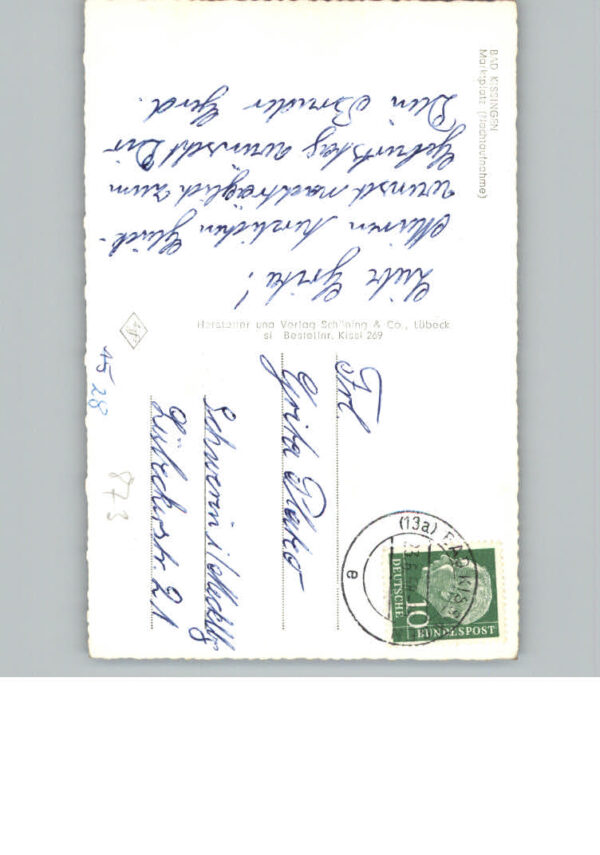 BAD KISSINGEN
Marktplatz (Nachtaufnahme)
Liebe Grita!
Meinen herzlichen Glück-
wunsch nachträglich zum
Geburtstag wünscht Dir
Dein Bruder Gerd.
Hersteller und Verlag Schöning & Co., Lübeck
si Bestellnr. Kissi 269
Frl.
Grita
Schwerin i/Mecklbg
Lübeckerstr 21
15 28
873
(13a) BAD KISS
a
10
DEUTSCHE
BUNDESPOST